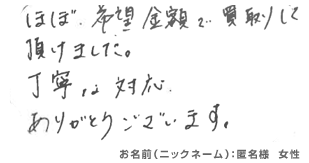 ほぼ、希望金額で買取りして
頂けました。
丁寧な対応
ありがとうございます。
お名前（ニックネーム）：匿名様 女性